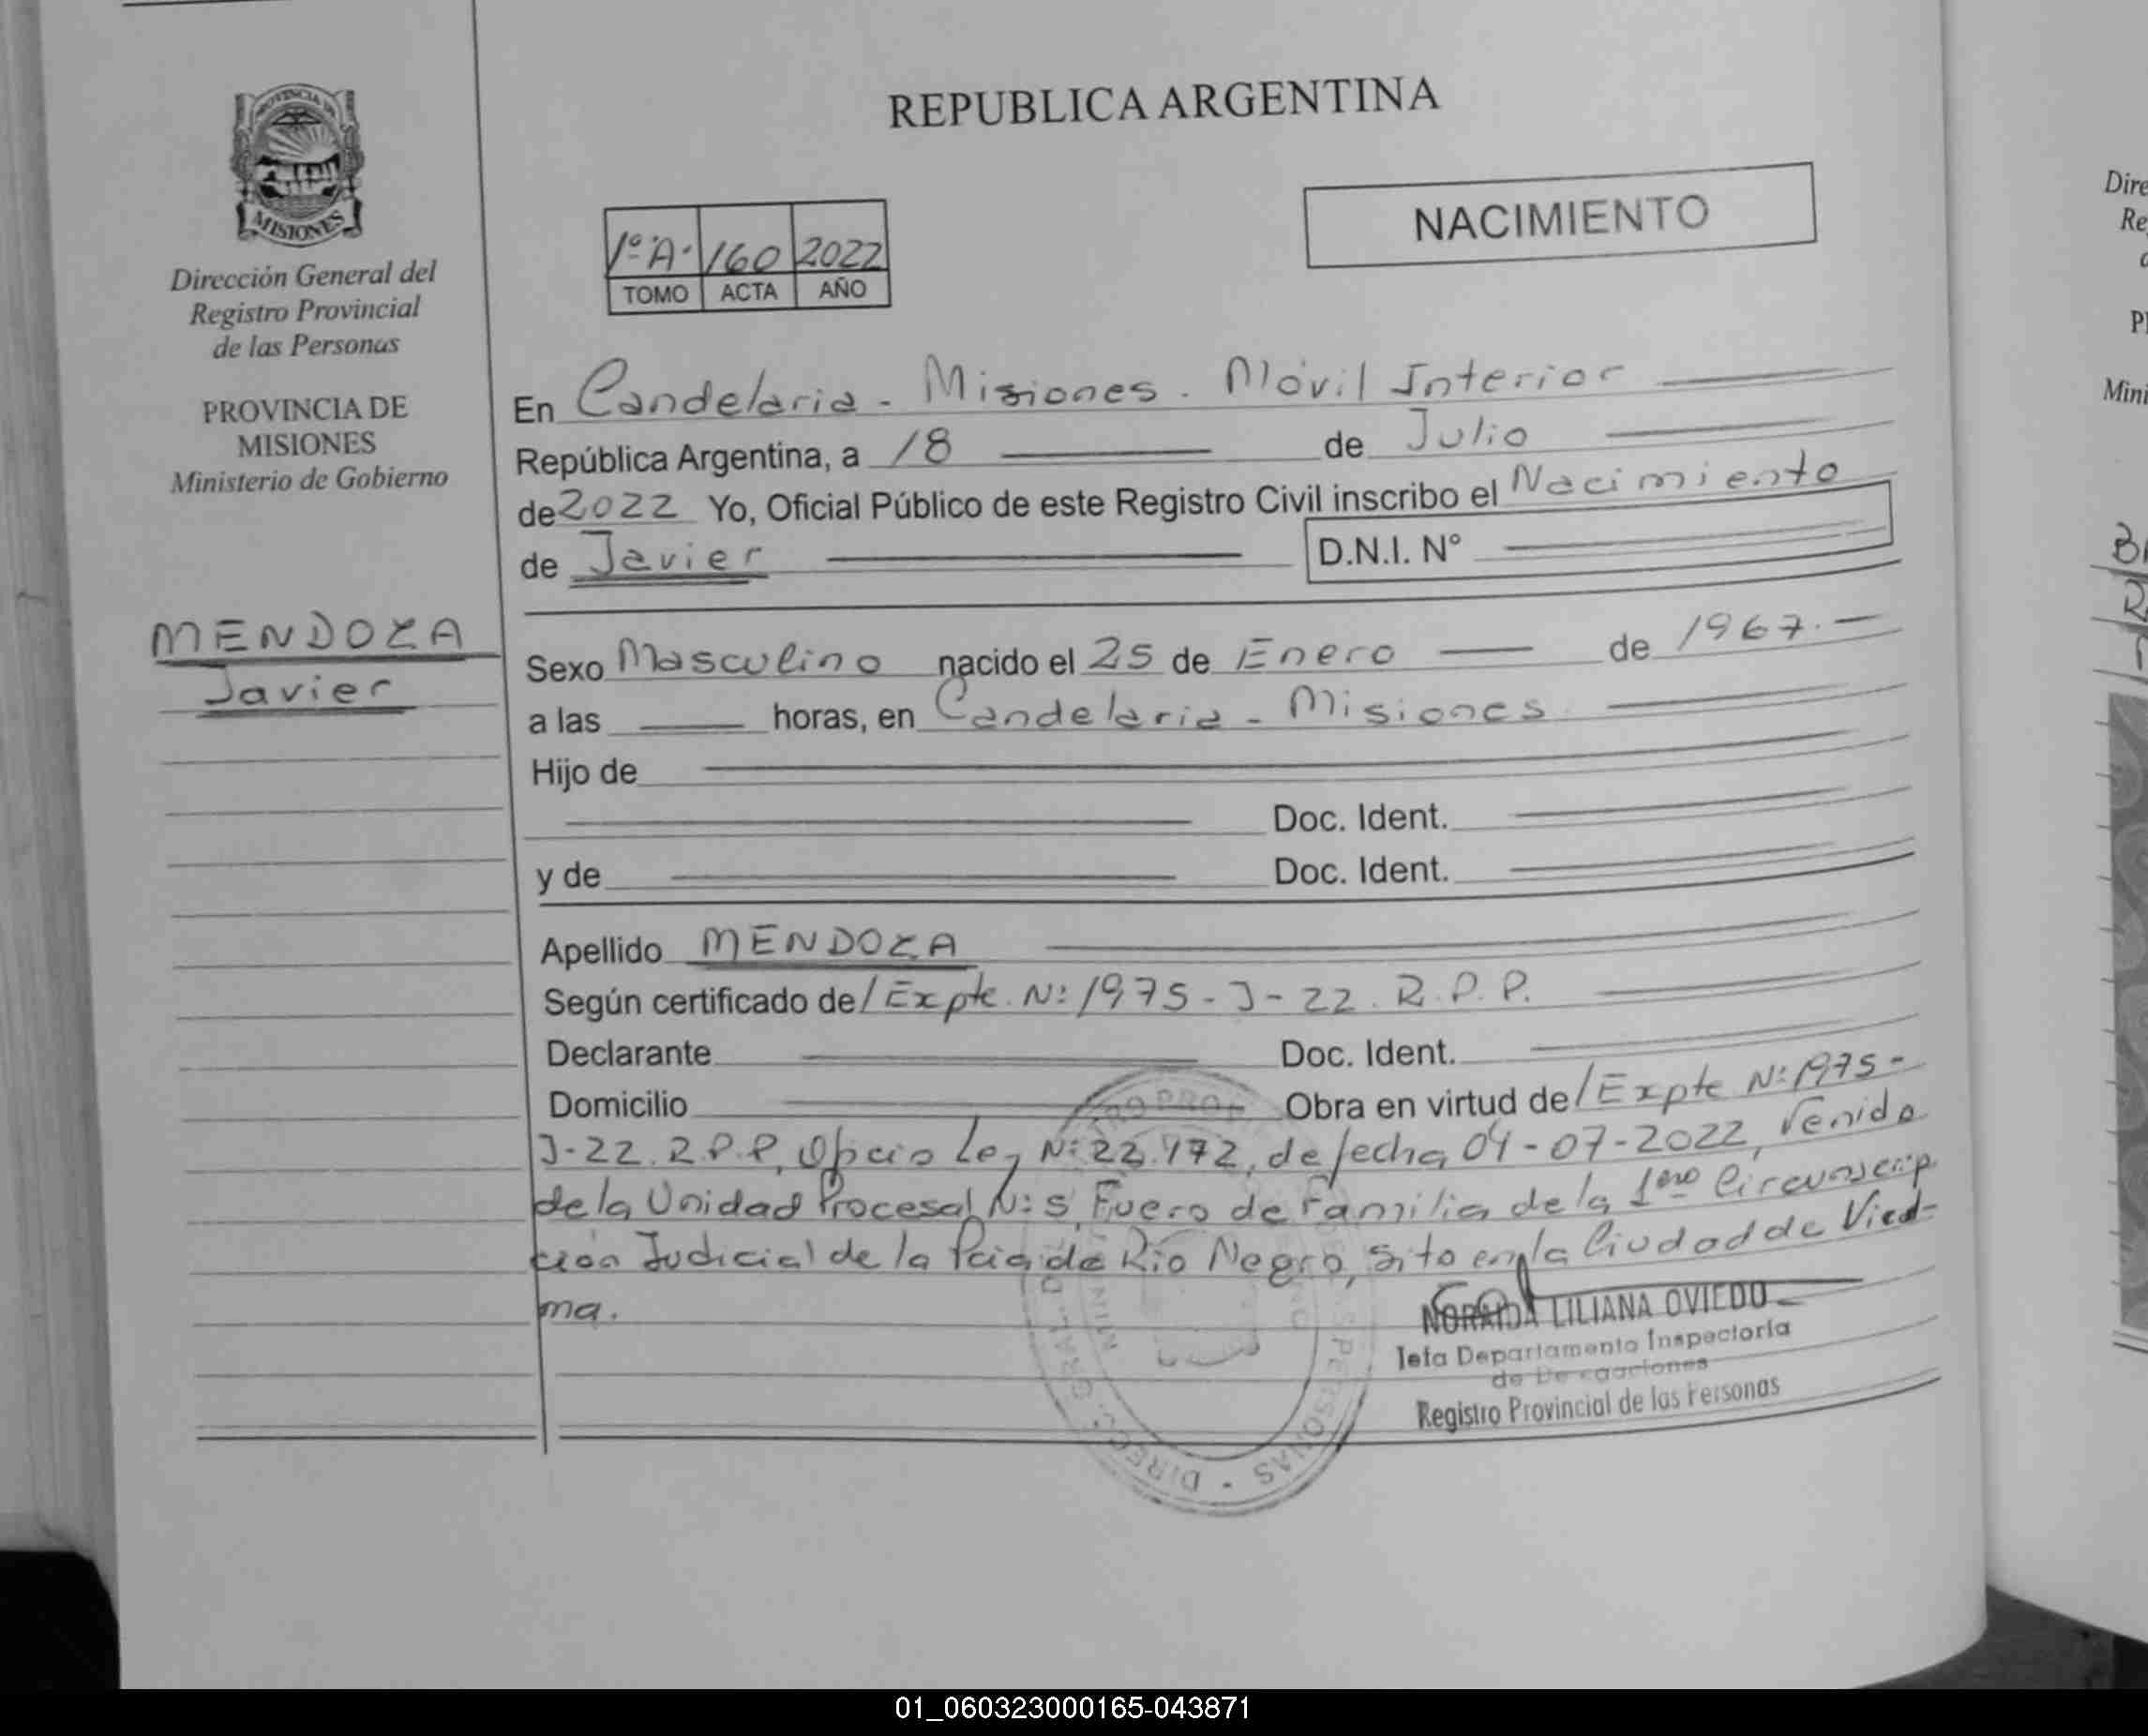 PROVINCIA DE
MISIONES
Dirección General del
Registro Provincial
de las Personas
PROVINCIA DE
MISIONES
Ministerio de Gobierno
MENDOZA
Javier
REPUBLICA ARGENTINA
NACIMIENTO
1º A. 160 2022
TOMO ACTA AÑO
En Candelaria - Misiones - Móvil Interior
República Argentina, a 18 de Julio
de 2022 Yo, Oficial Público de este Registro Civil inscribo el Nacimiento
de Javier D.N.I. N°
Sexo Masculino nacido el 25 de Enero de 1967.-
a las horas, en Candelaria - Misiones
Hijo de
Doc. Ident.
y de Doc. Ident.
Apellido MENDOZA
Según certificado de/ Expte. Nº 1975-J-22. R.P.P.
Declarante Doc. Ident.
Domicilio Obra en virtud de/ Expte Nº 1975-
J-22. R.P.P, Oficio Ley Nº 22.172, de fecha 04-07-2022, Venido
de la Unidad Procesal Nº 5, Fuero de Familia de la 1era Circunscrip
ción Judicial de la Pcia de Río Negro, sito en la Ciudad de Vied-
ma.
NORAIDA LILIANA OVIEDO
Jefa Departamento Inspectoría
de
Registro Provincial de las Personas
DIREC. GRAL. D
PERSONAS
Dire
Re
Mini
01_060323000165-043871